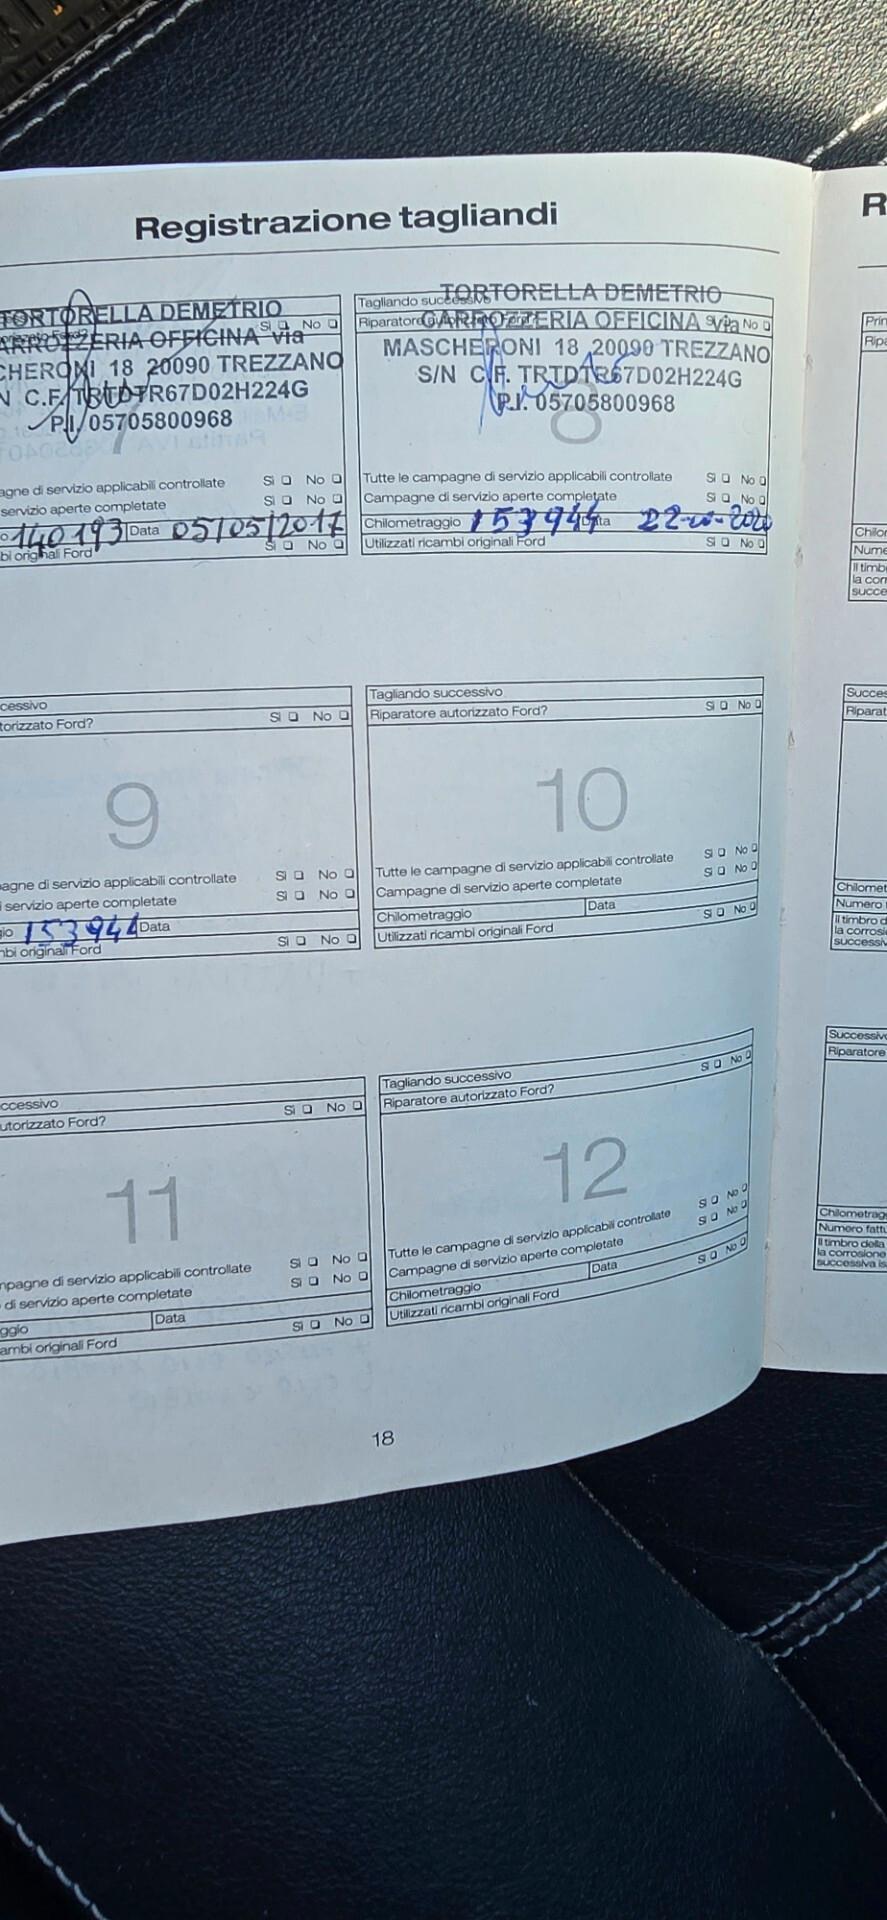 Registrazione tagliandi
R
TORTORELLA DEMETRIO
Si No
ARROZZERIA OFFICINA via
CHERONI 18 20090 TREZZANO
N C.F. TRTDTR67D02H224G
P.I. 05705800968
7
agne di servizio applicabili controllate Si No
servizio aperte completate Si No
o 140193 Data 05/05/2017
bi originali Ford Si No
Tagliando successivo
TORTORELLA DEMETRIO
Riparatore autorizzato Ford? Si No
CARROZZERIA OFFICINA via
MASCHERONI 18 20090 TREZZANO
S/N C.F. TRTDTR67D02H224G
P.I. 05705800968
8
Tutte le campagne di servizio applicabili controllate Si No
Campagne di servizio aperte completate Si No
Chilometraggio 153944 Data
Utilizzati ricambi originali Ford Si No
cessivo
torizzato Ford? Si No
9
agne di servizio applicabili controllate Si No
i servizio aperte completate Si No
gio 153944 Data
nbi originali Ford Si No
Tagliando successivo
Riparatore autorizzato Ford? Si No
10
Tutte le campagne di servizio applicabili controllate Si No
Campagne di servizio aperte completate Si No
Chilometraggio Data
Utilizzati ricambi originali Ford Si No
ccessivo
utorizzato Ford? Si No
11
mpagne di servizio applicabili controllate Si No
di servizio aperte completate Si No
ggio Data
ambi originali Ford Si No
Tagliando successivo
Riparatore autorizzato Ford? Si No
12
Tutte le campagne di servizio applicabili controllate Si No
Campagne di servizio aperte completate Si No
Chilometraggio Data
Utilizzati ricambi originali Ford Si No
18
Prin
Ripa
Chilor
Nume
Il timb
la corr
succe
Succes
Riparat
Chilomet
Numero
Il timbro d
la corrosi
successiv
Successivo
Riparatore
Chilometragg
Numero fattu
Il timbro della
la corrosione
successiva is